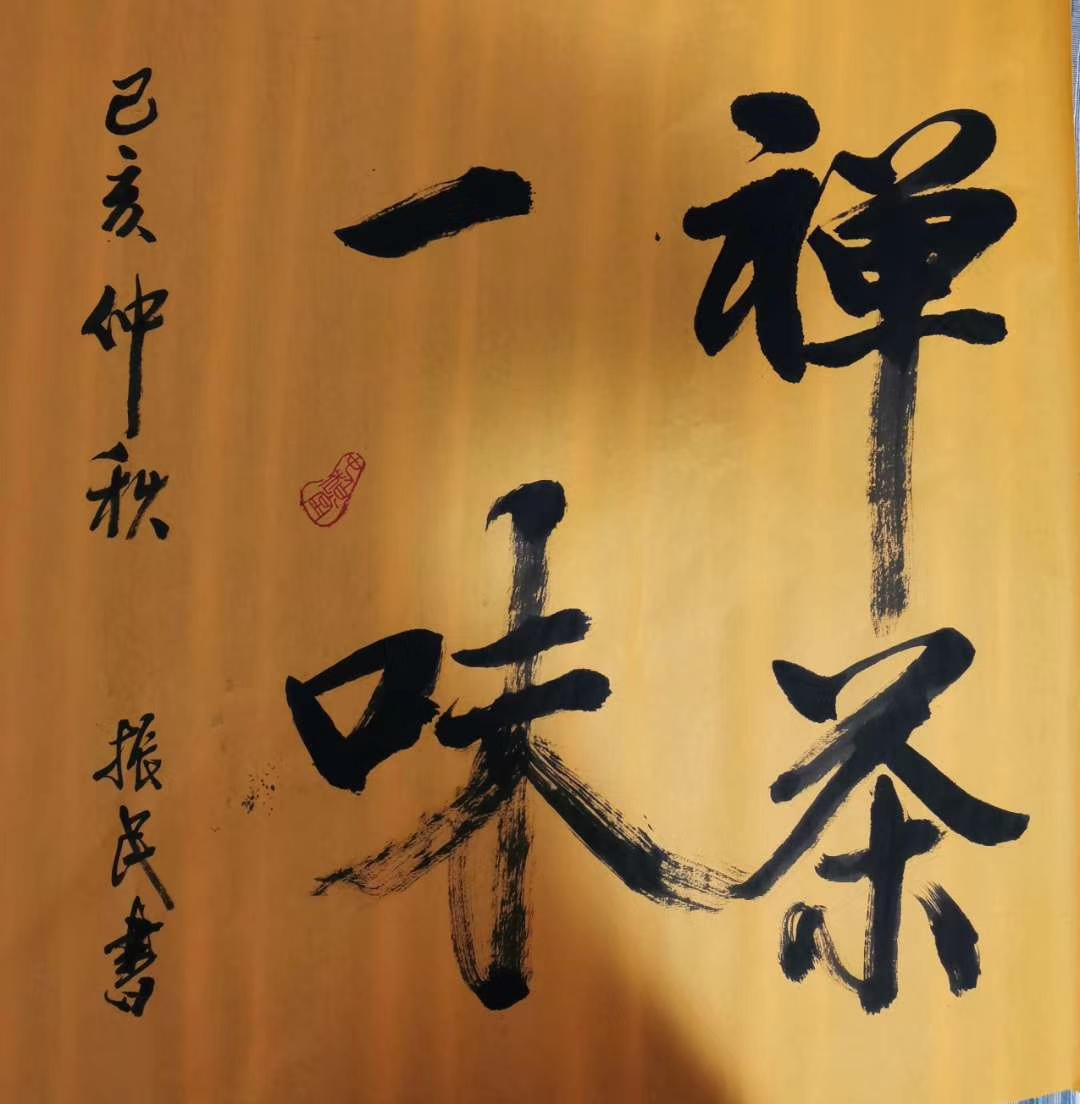 禅茶
一味
己亥仲秋 振民書